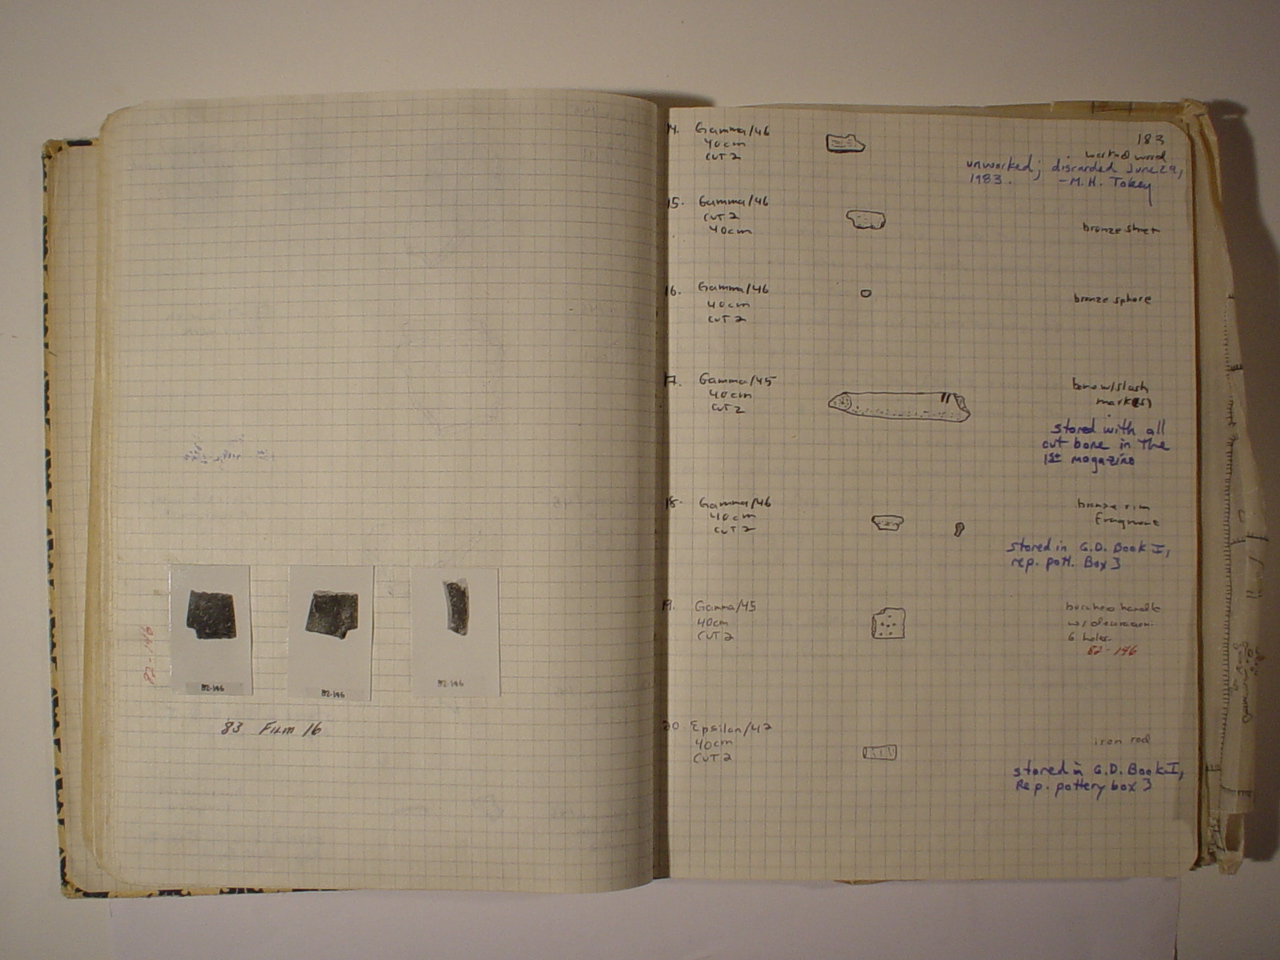 82-146
82-146
82-146
82-146
83 Film 16
183
14. Gamma/46
40cm
CUT 2
worked wood
unworked; discarded June 29,
1983. -M.H. Tokey
15. Gamma/46
CUT 2
40cm
bronze sheet
16. Gamma/46
40cm
CUT 2
bronze sphere
17. Gamma/45
40cm
CUT 2
bone w/slash
mark(s)
stored with all
cut bone in the
1st magazine
18. Gamma/46
40cm
CUT 2
bronze rim
fragment
stored in G.D. Book I,
rep. pott. Box 3
19. Gamma/45
40cm
CUT 2
handle
6 holes
82-146
20 Epsilon/42
40cm
CUT 2
iron rod
stored in G.D. Book I,
Rep. pottery box 3